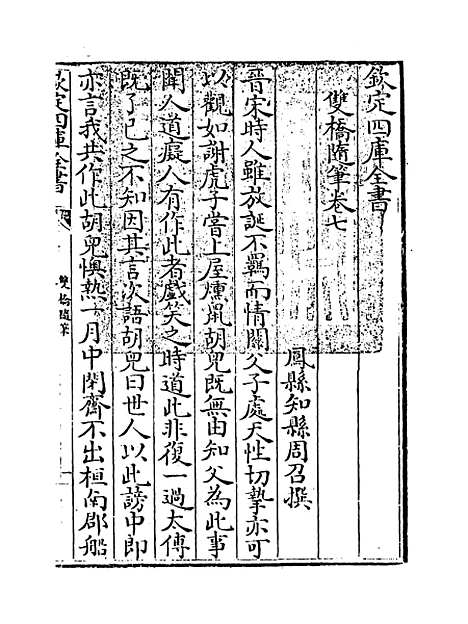 欽定四庫全書
雙橋隨筆卷七
鳳縣知縣周召撰
晉宋時人雖放誕不羈而情關父子處天性切摯亦可
以觀如謝虎子嘗上屋燻鼠胡兒既無由知父為此事
聞人道癡人有作此者戲笑之時道此非復一過太傅
既了己之不知因其言次語胡兒曰世人以此謗中郎
亦言我共作此胡兒懊熱一月中閉齋不出桓南郡船
欽定四庫全書
雙橋隨筆